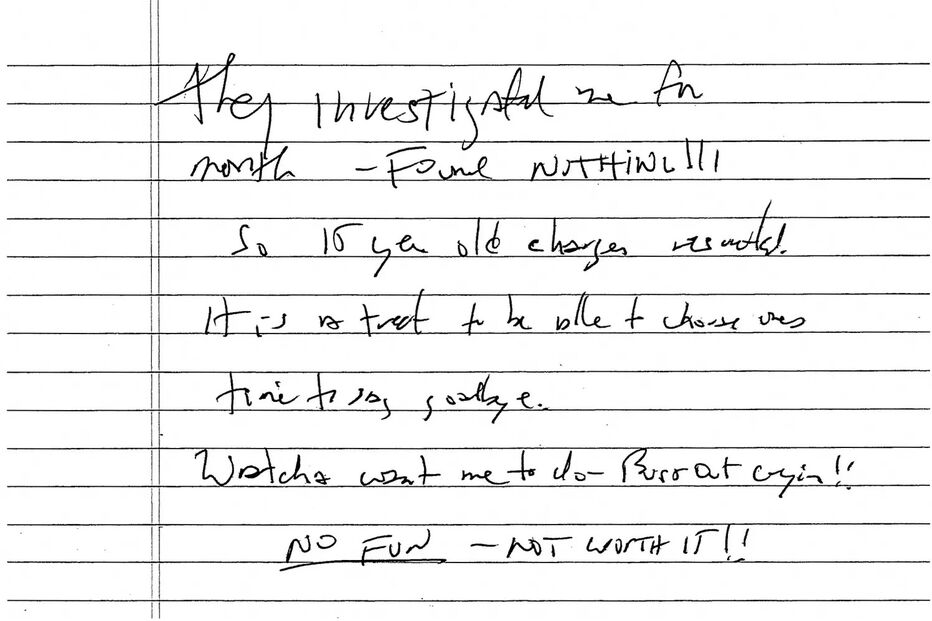 They investigated me for
month - Found NOTHING!!!
So 15 year old charges resulted.
It is a treat to be able to choose ones
time to say goodbye.
Watcha want me to do - Bust out cryin!!
NO FUN - NOT WORTH IT!!